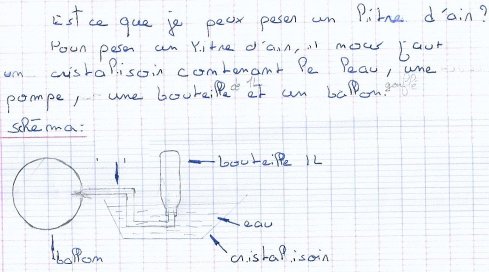 Est ce que je peux peser un litre d'air?
Pour peser un litre d'air, il nous faut
un cristalisoir contenant le l'eau, une
pompe, une bouteille de 1L et un ballon. gonflé
schéma:
bouteille 1L
eau
cristalisoir
ballon